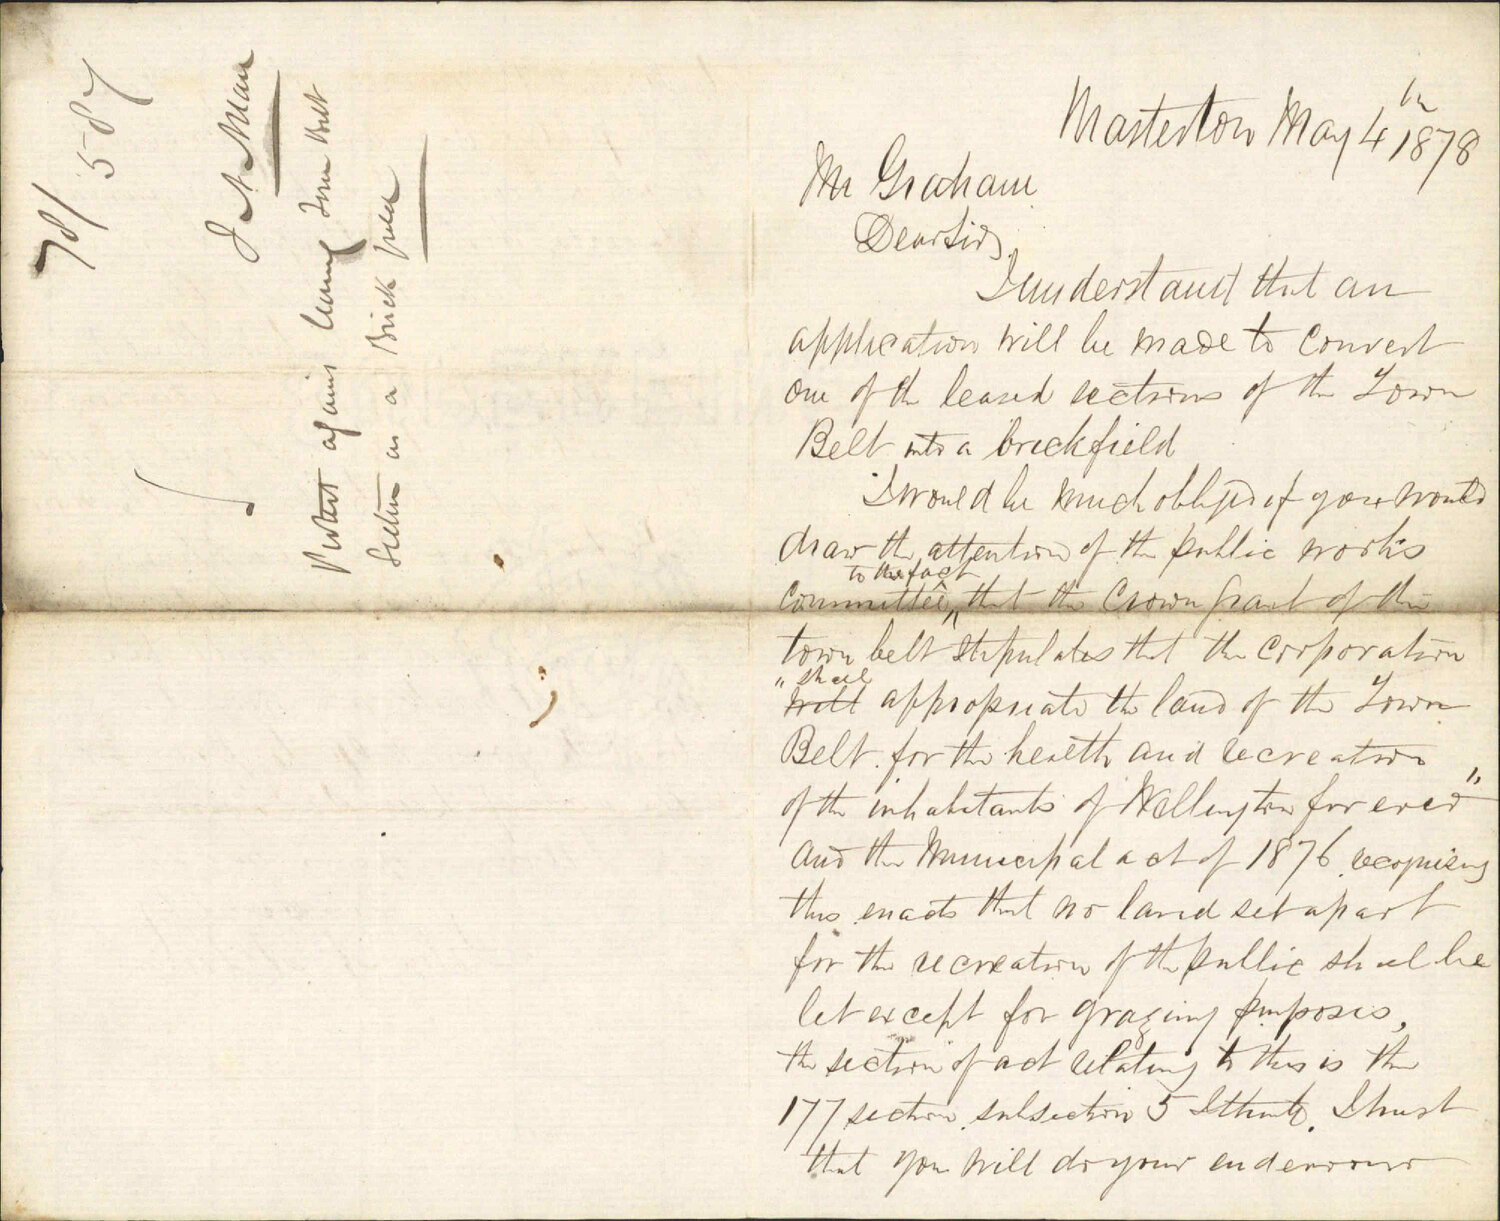 78/587
J A Mau
Protest against leasing Town Belt
Section as a Brick field
Masterton May 4th 1878
Mr Graham
Dear Sir,
I understand that an
application will be made to convert
one of the leased sections of the Town
Belt into a brickfield
I would be much obliged if you would
draw the attention of the public works
committee to the fact that the Crown Grant of the
town belt stipulates that the corporation
"shall will appropriate the land of the Town
Belt for the health and recreation
of the inhabitants of Wellington for ever"
and the Municipal act of 1876 recognising
this enacts that no land set apart
for the recreation of the public shall be
let except for grazing purposes,
the section of act relating to this is the
177 section, subsection 5 I think. I trust
that you will do your endeavour